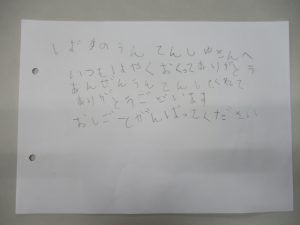 しばすのうんてんしゅさんへ
いつもはやくおくってありがとう
あんぜんうんてんしてくれて
ありがとうございます
おしごとがんばってください